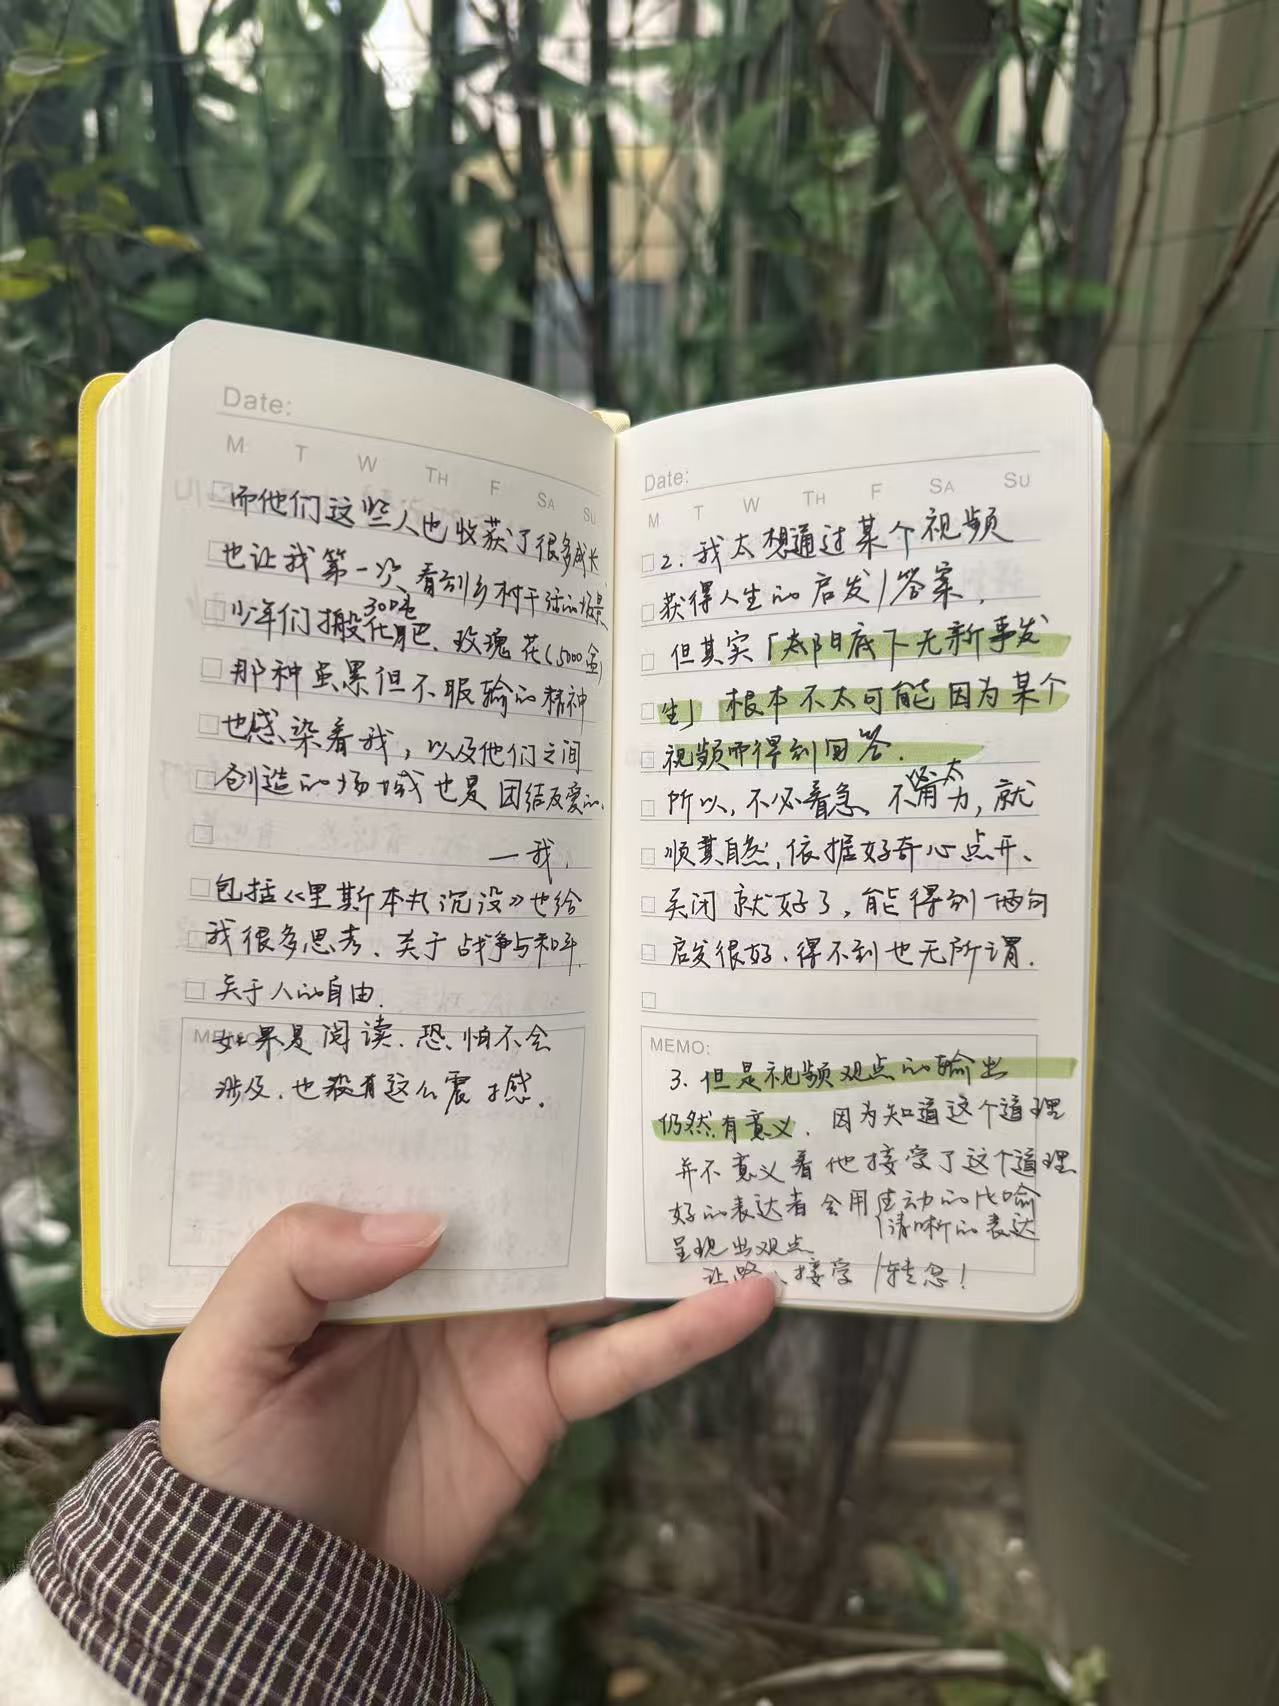 Date:
M T W TH F SA SU
而他们这些人也收获了很多成长
也让我第一次看到乡村干活的场景
300吨
少年们搬化肥、玫瑰花(5000盆)
那种虽累但不服输的精神
也感染着我，以及他们之间
创造的场域也是团结友爱的.
一我.
包括《里斯本丸沉没》也给
我很多思考、关于战争与和平.
关于人的自由.
MEMO:
如果是阅读、恐怕不会
涉及、也没有这么震撼.
Date:
M T W TH F SA SU
2. 我太想通过某个视频
获得人生的启发/答案.
但其实「太阳底下无新事发
生」根本不太可能因为某个
视频而得到回答.
所以,不必着急、不必太用力,就
顺其自然,依据好奇心点开、
关闭就好了,能得到两句
启发很好、得不到也无所谓.
MEMO:
3. 但是视频观点的输出
仍然有意义. 因为知道这个道理
并不意义着他接受了这个道理
好的表达者会用生动的比喻
清晰的表达
呈现出观点
让 接受/转念!